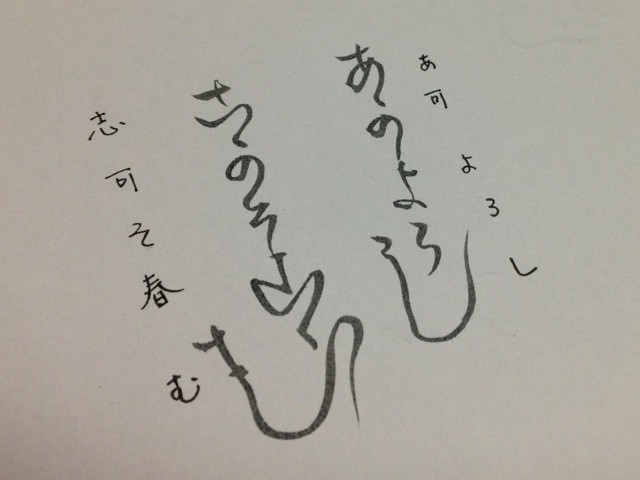 あ可よろし
あ可よろし
志可そ春む
志可そ春む